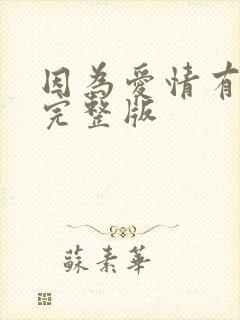 因為愛情有
完整版
蘇素華